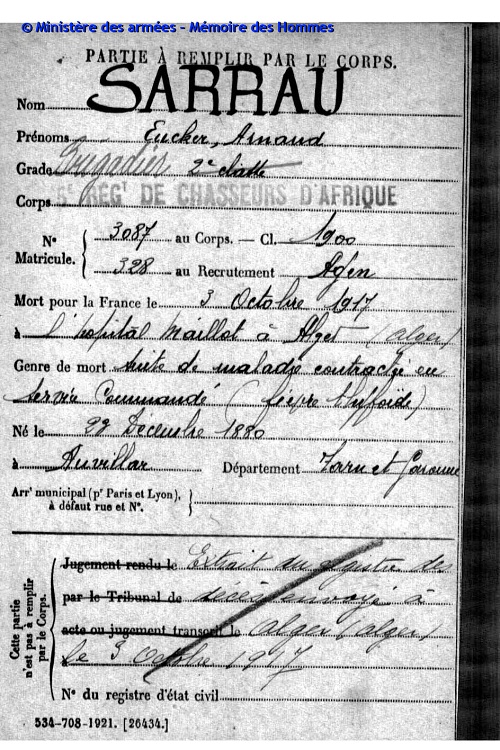 © Ministère des armées - Mémoire des Hommes
PARTIE À REMPLIR PAR LE CORPS.
Nom SARRAU
Prénoms Eucher, Arnaud
Grade Brigadier 2e classe
Corps 5e RÉGt DE CHASSEURS D'AFRIQUE
N° Matricule. { 3087 au Corps. — Cl. 1900
328 au Recrutement Agen
Mort pour la France le 3 Octobre 1917
à l'hopital Maillot à Alger (Alger)
Genre de mort suite de maladie contractée en
service Commandé (fièvre typhoïde)
Né le 22 Décembre 1880
à Auvillar Département Tarn et Garonne
Arrt municipal (pr Paris et Lyon), à défaut rue et N°.
Cette partie n'est pas à remplir par le Corps.
Jugement rendu le Extrait du registre de
par le Tribunal de décès envoyé à
acte ou jugement transcrit le Alger (Alger)
le 3 Octobre 1917
N° du registre d'état civil
534-708-1921. [26434.]